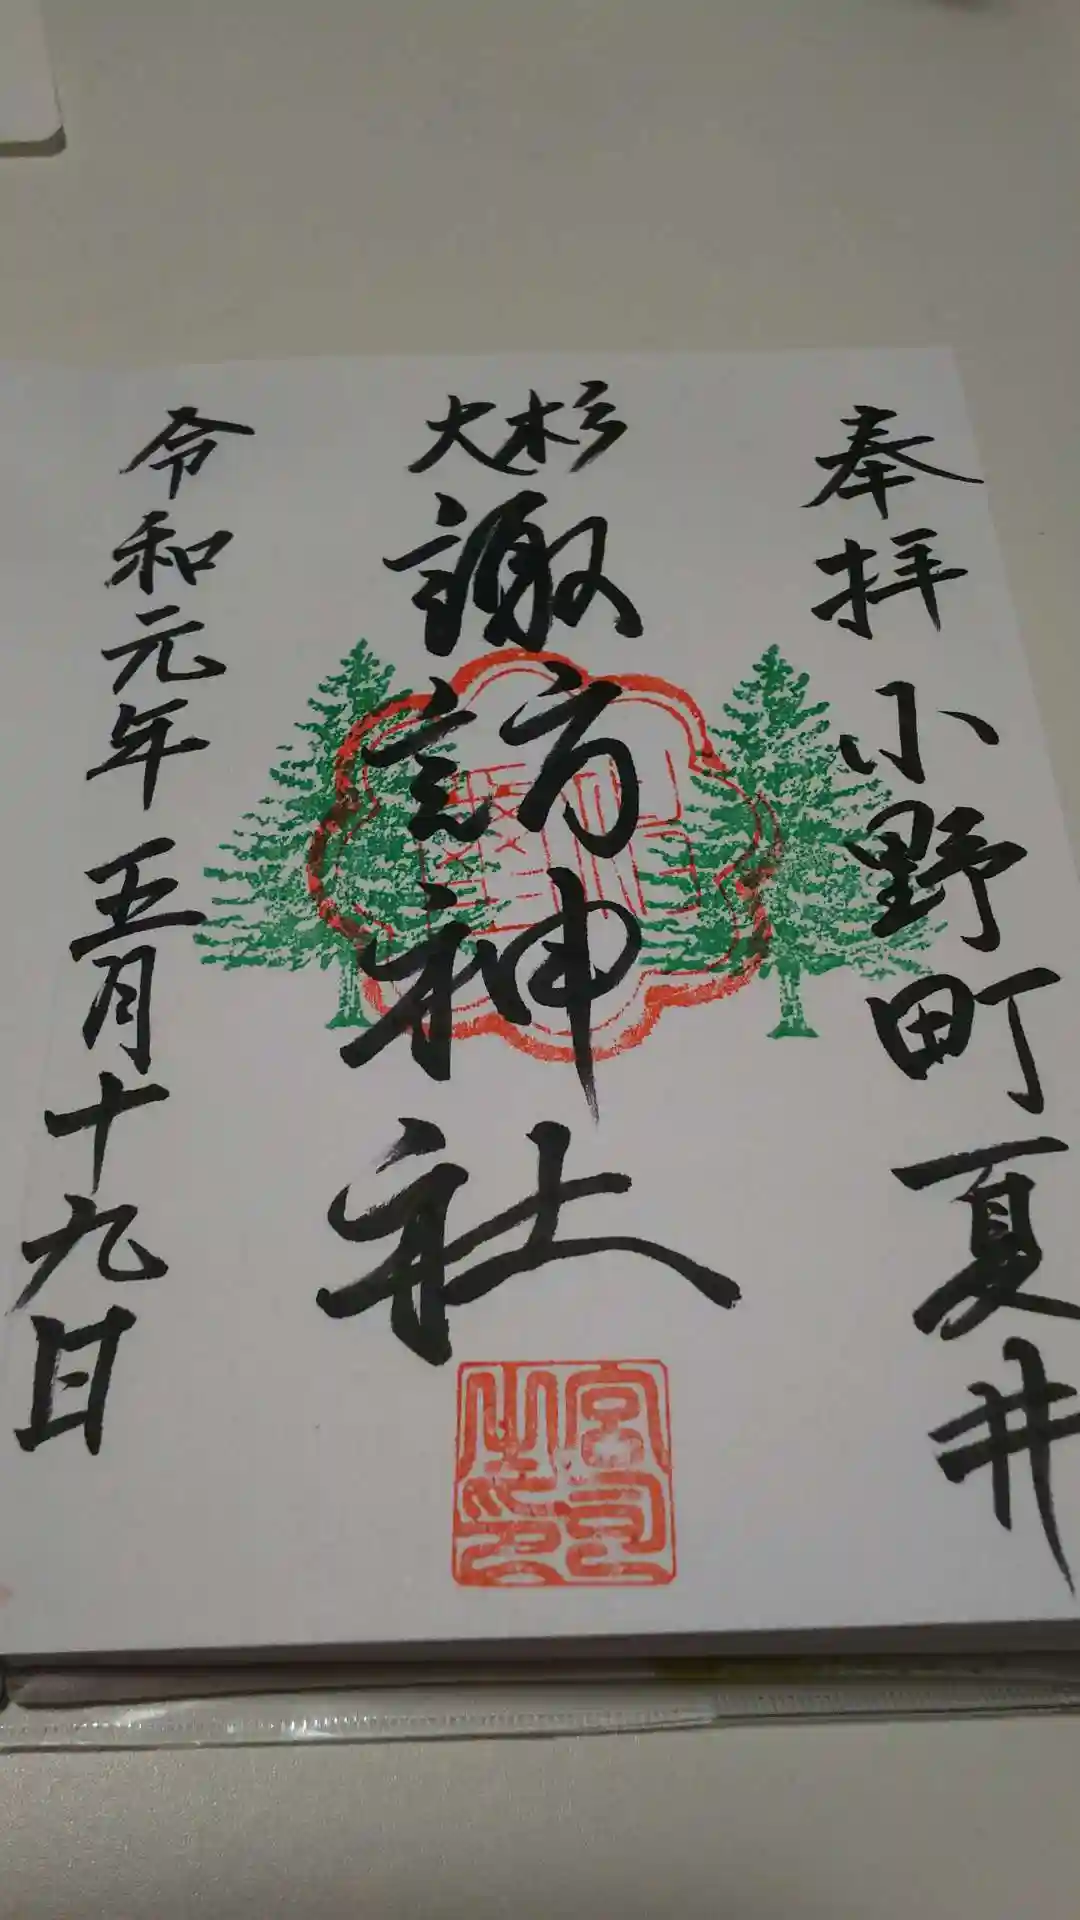 奉拝 小野町夏井
大杉
諏訪神社
宮司之印
令和元年五月十九日